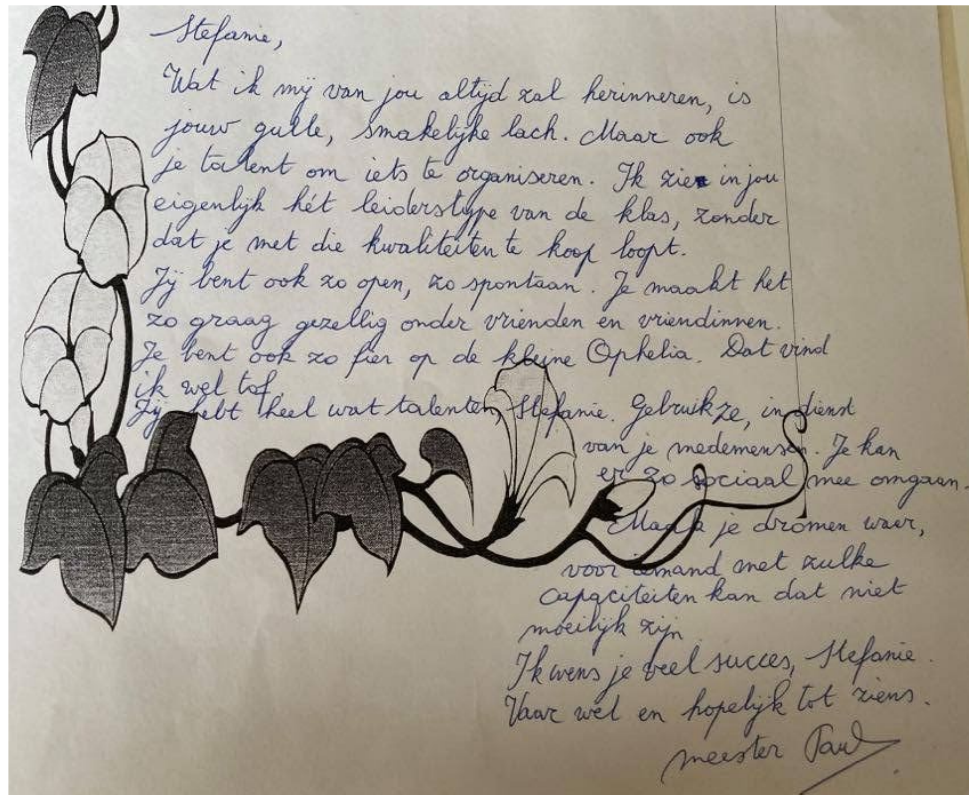 Stefanie,
Wat ik mij van jou altijd zal herinneren, is
jouw gulle, smakelijke lach. Maar ook
je talent om iets te organiseren. Ik zie in jou
eigenlijk hét leiderstype van de klas, zonder
dat je met die kwaliteiten te koop loopt.
Jij bent ook zo open, zo spontaan. Je maakt het
zo graag gezellig onder vrienden en vriendinnen.
Je bent ook zo fier op de kleine Ophelia. Dat vind
ik wel tof.
Jij hebt heel wat talenten, Stefanie. Gebruik ze, in dienst
van je medemensen. Je kan
er zo sociaal mee omgaan.
Maak je dromen waar,
voor iemand met zulke
capaciteiten kan dat niet
moeilijk zijn
Ik wens je veel succes, Stefanie.
Vaar wel en hopelijk tot ziens.
meester Paul